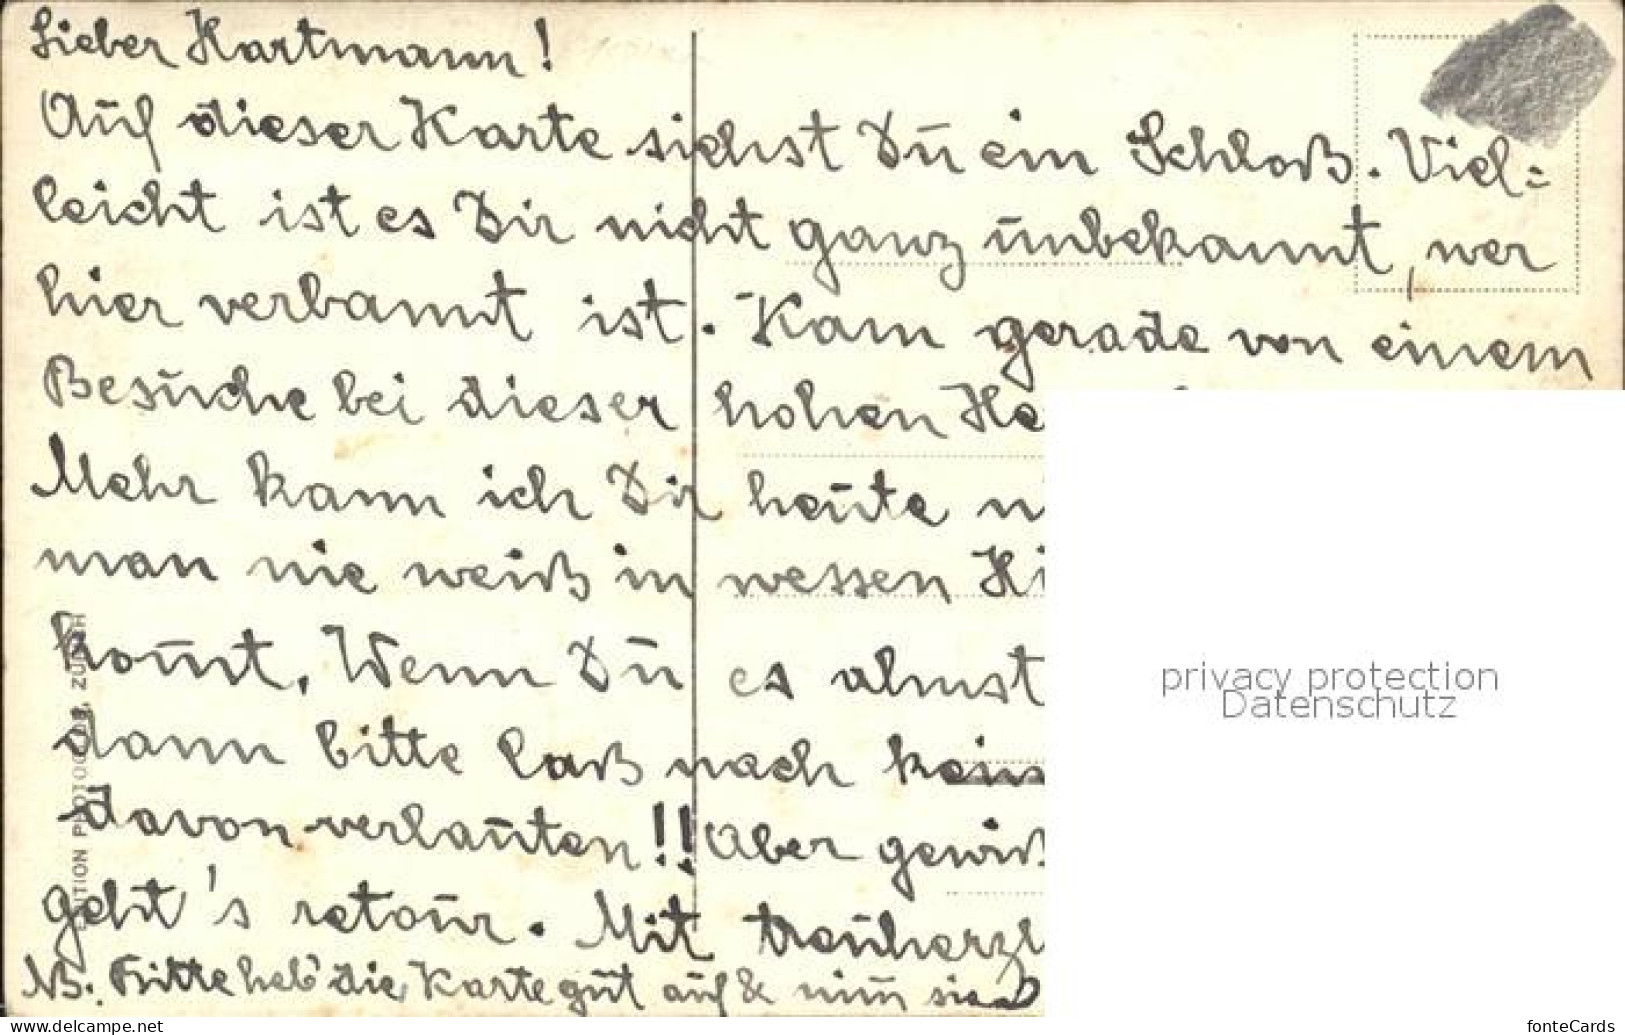 Lieber Hartmann!
Auf dieser Karte siehst Du ein Schloß. Viel=
leicht ist es Dir nicht ganz unbekannt, wer
hier verbannt ist. Kam gerade von einem
Besuche bei dieser hohen He
Mehr kann ich Dir heute n
man nie weiß in wessen Hä
kom̄t. Wenn Du es ahnst
dann bitte laß nach kein
davon verlauten!! Aber gewiß
geht's retour. Mit treuherzl
NB. Bitte heb' die Karte gut auf & nim̄ sie
EDITION PHOTOGLOB, ZÜRICH
privacy protection
Datenschutz
www.delcampe.net
fonteCards